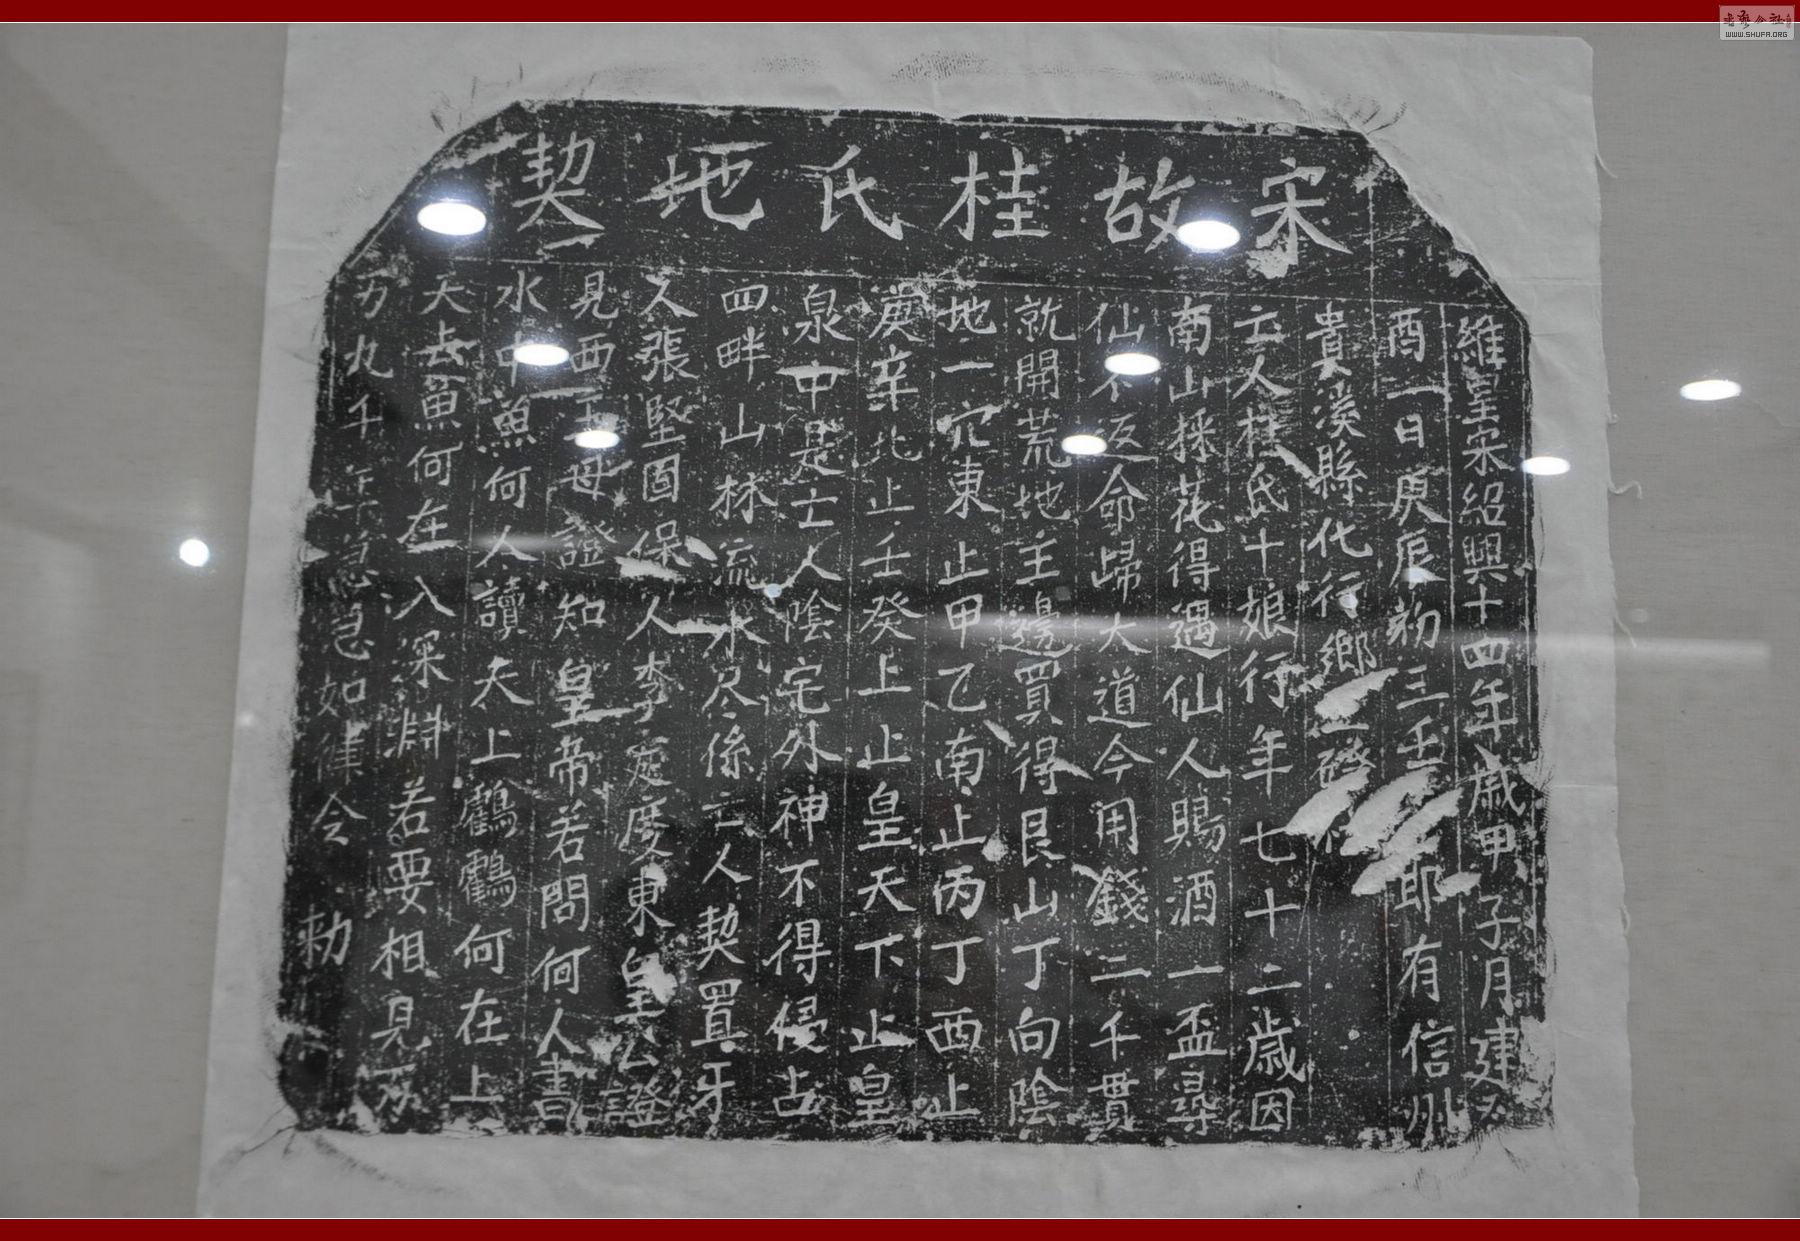 宋故桂氏地契
維皇宋紹興十四年歲甲子月建癸
酉一日庚辰初三壬 耶有信州
貴溪縣化行鄉
亡人桂氏十娘行年七十二歲因
南山採花得遇仙人賜酒一盃尋
仙不返命歸大道今用錢二千貫
就開荒地主邊買得艮山丁向陰
地一穴東止甲乙南止丙丁西止
庚辛北止壬癸上止皇天下止皇
泉中是亡人陰宅外神不得侵占
四畔山林流水尽係亡人契置牙
人張堅固保人李定度東皇公證
見西王母證知皇帝若問何人書
水中魚何人讀天上鶴鶴何在上
天去魚何在入深淵若要相見万
万九千年急急如律令 勅
WWW.SHUFA.ORG